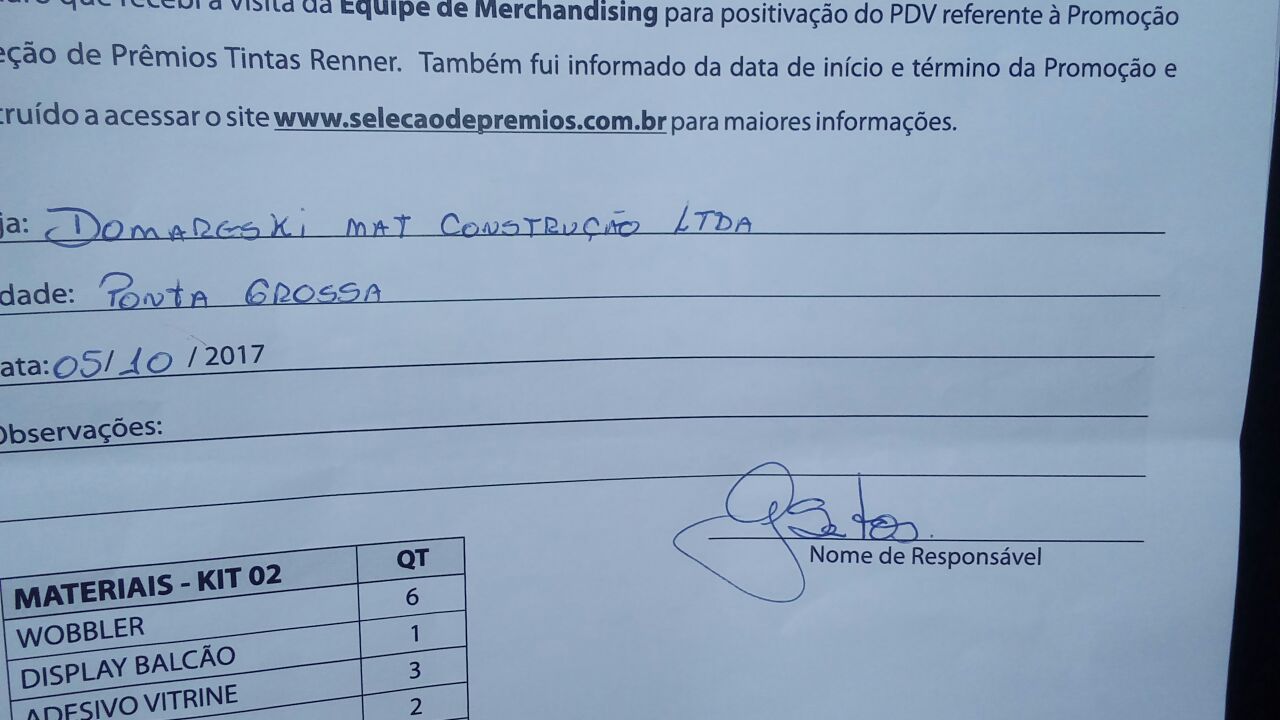 que recebi a visita da Equipe de Merchandising para positivação do PDV referente à Promoção
eção de Prêmios Tintas Renner. Também fui informado da data de início e término da Promoção e
truído a acessar o site www.selecaodepremios.com.br para maiores informações.
ja: DOMARESKI MAT CONSTRUÇÃO LTDA
dade: PONTA GROSSA
ata: 05/10 / 2017
Observações:
Nome de Responsável
MATERIAIS - KIT 02 QT
WOBBLER 6
DISPLAY BALCÃO 1
ADESIVO VITRINE 3
2